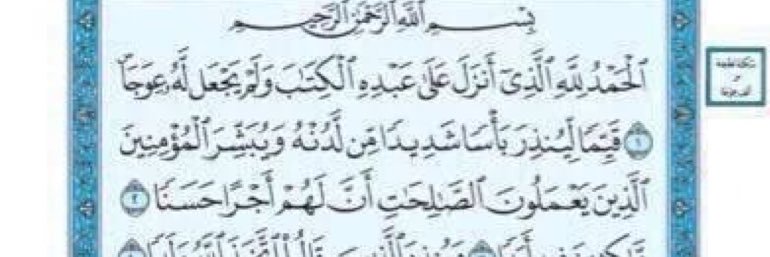 بِسْمِ اللَّهِ الرَّحْمَٰنِ الرَّحِيمِ
الْحَمْدُ لِلَّهِ الَّذِي أَنزَلَ عَلَىٰ عَبْدِهِ الْكِتَابَ وَلَمْ يَجْعَل لَّهُ عِوَجَا
١ قَيِّمًا لِّيُنذِرَ بَأْسًا شَدِيدًا مِّن لَّدُنْهُ وَيُبَشِّرَ الْمُؤْمِنِينَ
الَّذِينَ يَعْمَلُونَ الصَّالِحَاتِ أَنَّ لَهُمْ أَجْرًا حَسَنًا ٢